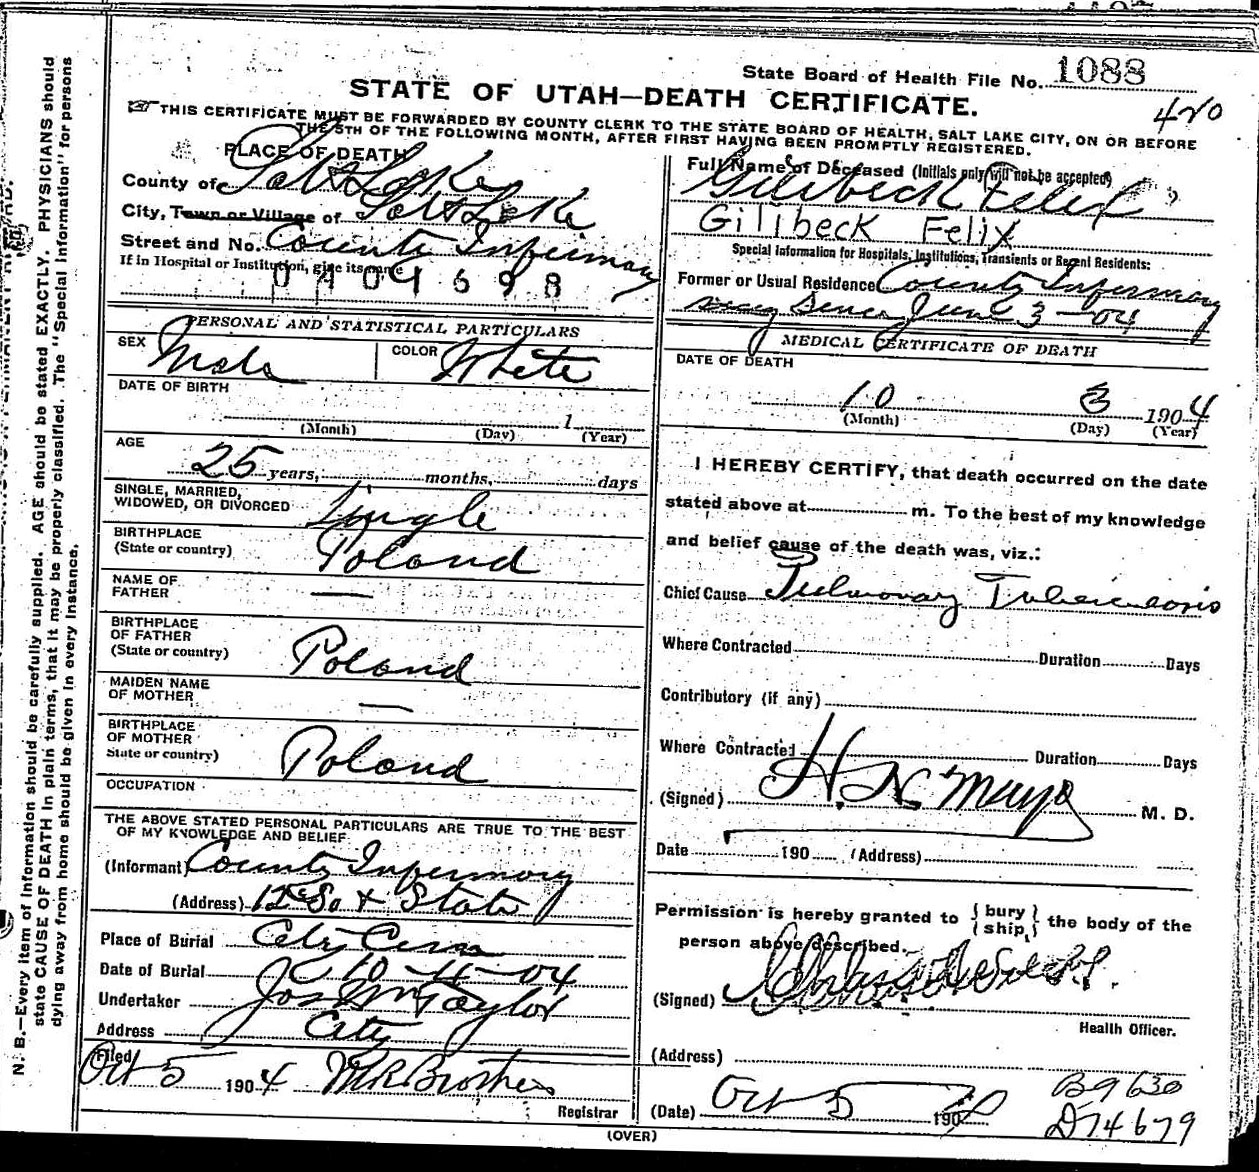 State Board of Health File No. 1088
STATE OF UTAH—DEATH CERTIFICATE.
420
THIS CERTIFICATE MUST BE FORWARDED BY COUNTY CLERK TO THE STATE BOARD OF HEALTH, SALT LAKE CITY, ON OR BEFORE
THE 5TH OF THE FOLLOWING MONTH, AFTER FIRST HAVING BEEN PROMPTLY REGISTERED.
PLACE OF DEATH
County of Salt Lake
City, Town or Village of Salt Lake
Street and No. County Infirmary
If in Hospital or Institution, give its name
0404698
PERSONAL AND STATISTICAL PARTICULARS
SEX Male COLOR White
DATE OF BIRTH
1
(Month) (Day) (Year)
AGE
25 years, months, days
SINGLE, MARRIED,
WIDOWED, OR DIVORCED Single
BIRTHPLACE
(State or country) Poland
NAME OF
FATHER —
BIRTHPLACE
OF FATHER
(State or country) Poland
MAIDEN NAME
OF MOTHER —
BIRTHPLACE
OF MOTHER
State or country) Poland
OCCUPATION
THE ABOVE STATED PERSONAL PARTICULARS ARE TRUE TO THE BEST
OF MY KNOWLEDGE AND BELIEF
(Informant County Infirmary
(Address) 12 So & State
Place of Burial City Cem
Date of Burial 10-4-04
Undertaker Jos Wm Taylor
Address City
Filed
Oct 5 1904 M R Brothers
Registrar
Full Name of Deceased (Initials only will not be accepted)
Gilibeck Felix ?
Gilibeck Felix
Special Information for Hospitals, Institutions, Transients or Recent Residents:
Former or Usual Residence County Infirmary
since June 3-04
MEDICAL CERTIFICATE OF DEATH
DATE OF DEATH
10 3 1904
(Month) (Day) (Year)
I HEREBY CERTIFY, that death occurred on the date
stated above at m. To the best of my knowledge
and belief cause of the death was, viz.:
Chief Cause Pulmonary Tuberculosis
Where Contracted Duration Days
Contributory (if any)
Where Contracted Duration Days
(Signed) H. N. Mayo M. D.
Date 190 (Address)
Permission is hereby granted to { bury } the body of the
{ ship, }
person above described.
(Signed)
Health Officer.
(Address)
(Date) Oct 5 190
B9630
D74679
(OVER)
N. B.—Every item of information should be carefully supplied. AGE should be stated EXACTLY. PHYSICIANS should
state CAUSE OF DEATH in plain terms, that it may be properly classified. The "Special Information" for persons
dying away from home should be given in every instance.